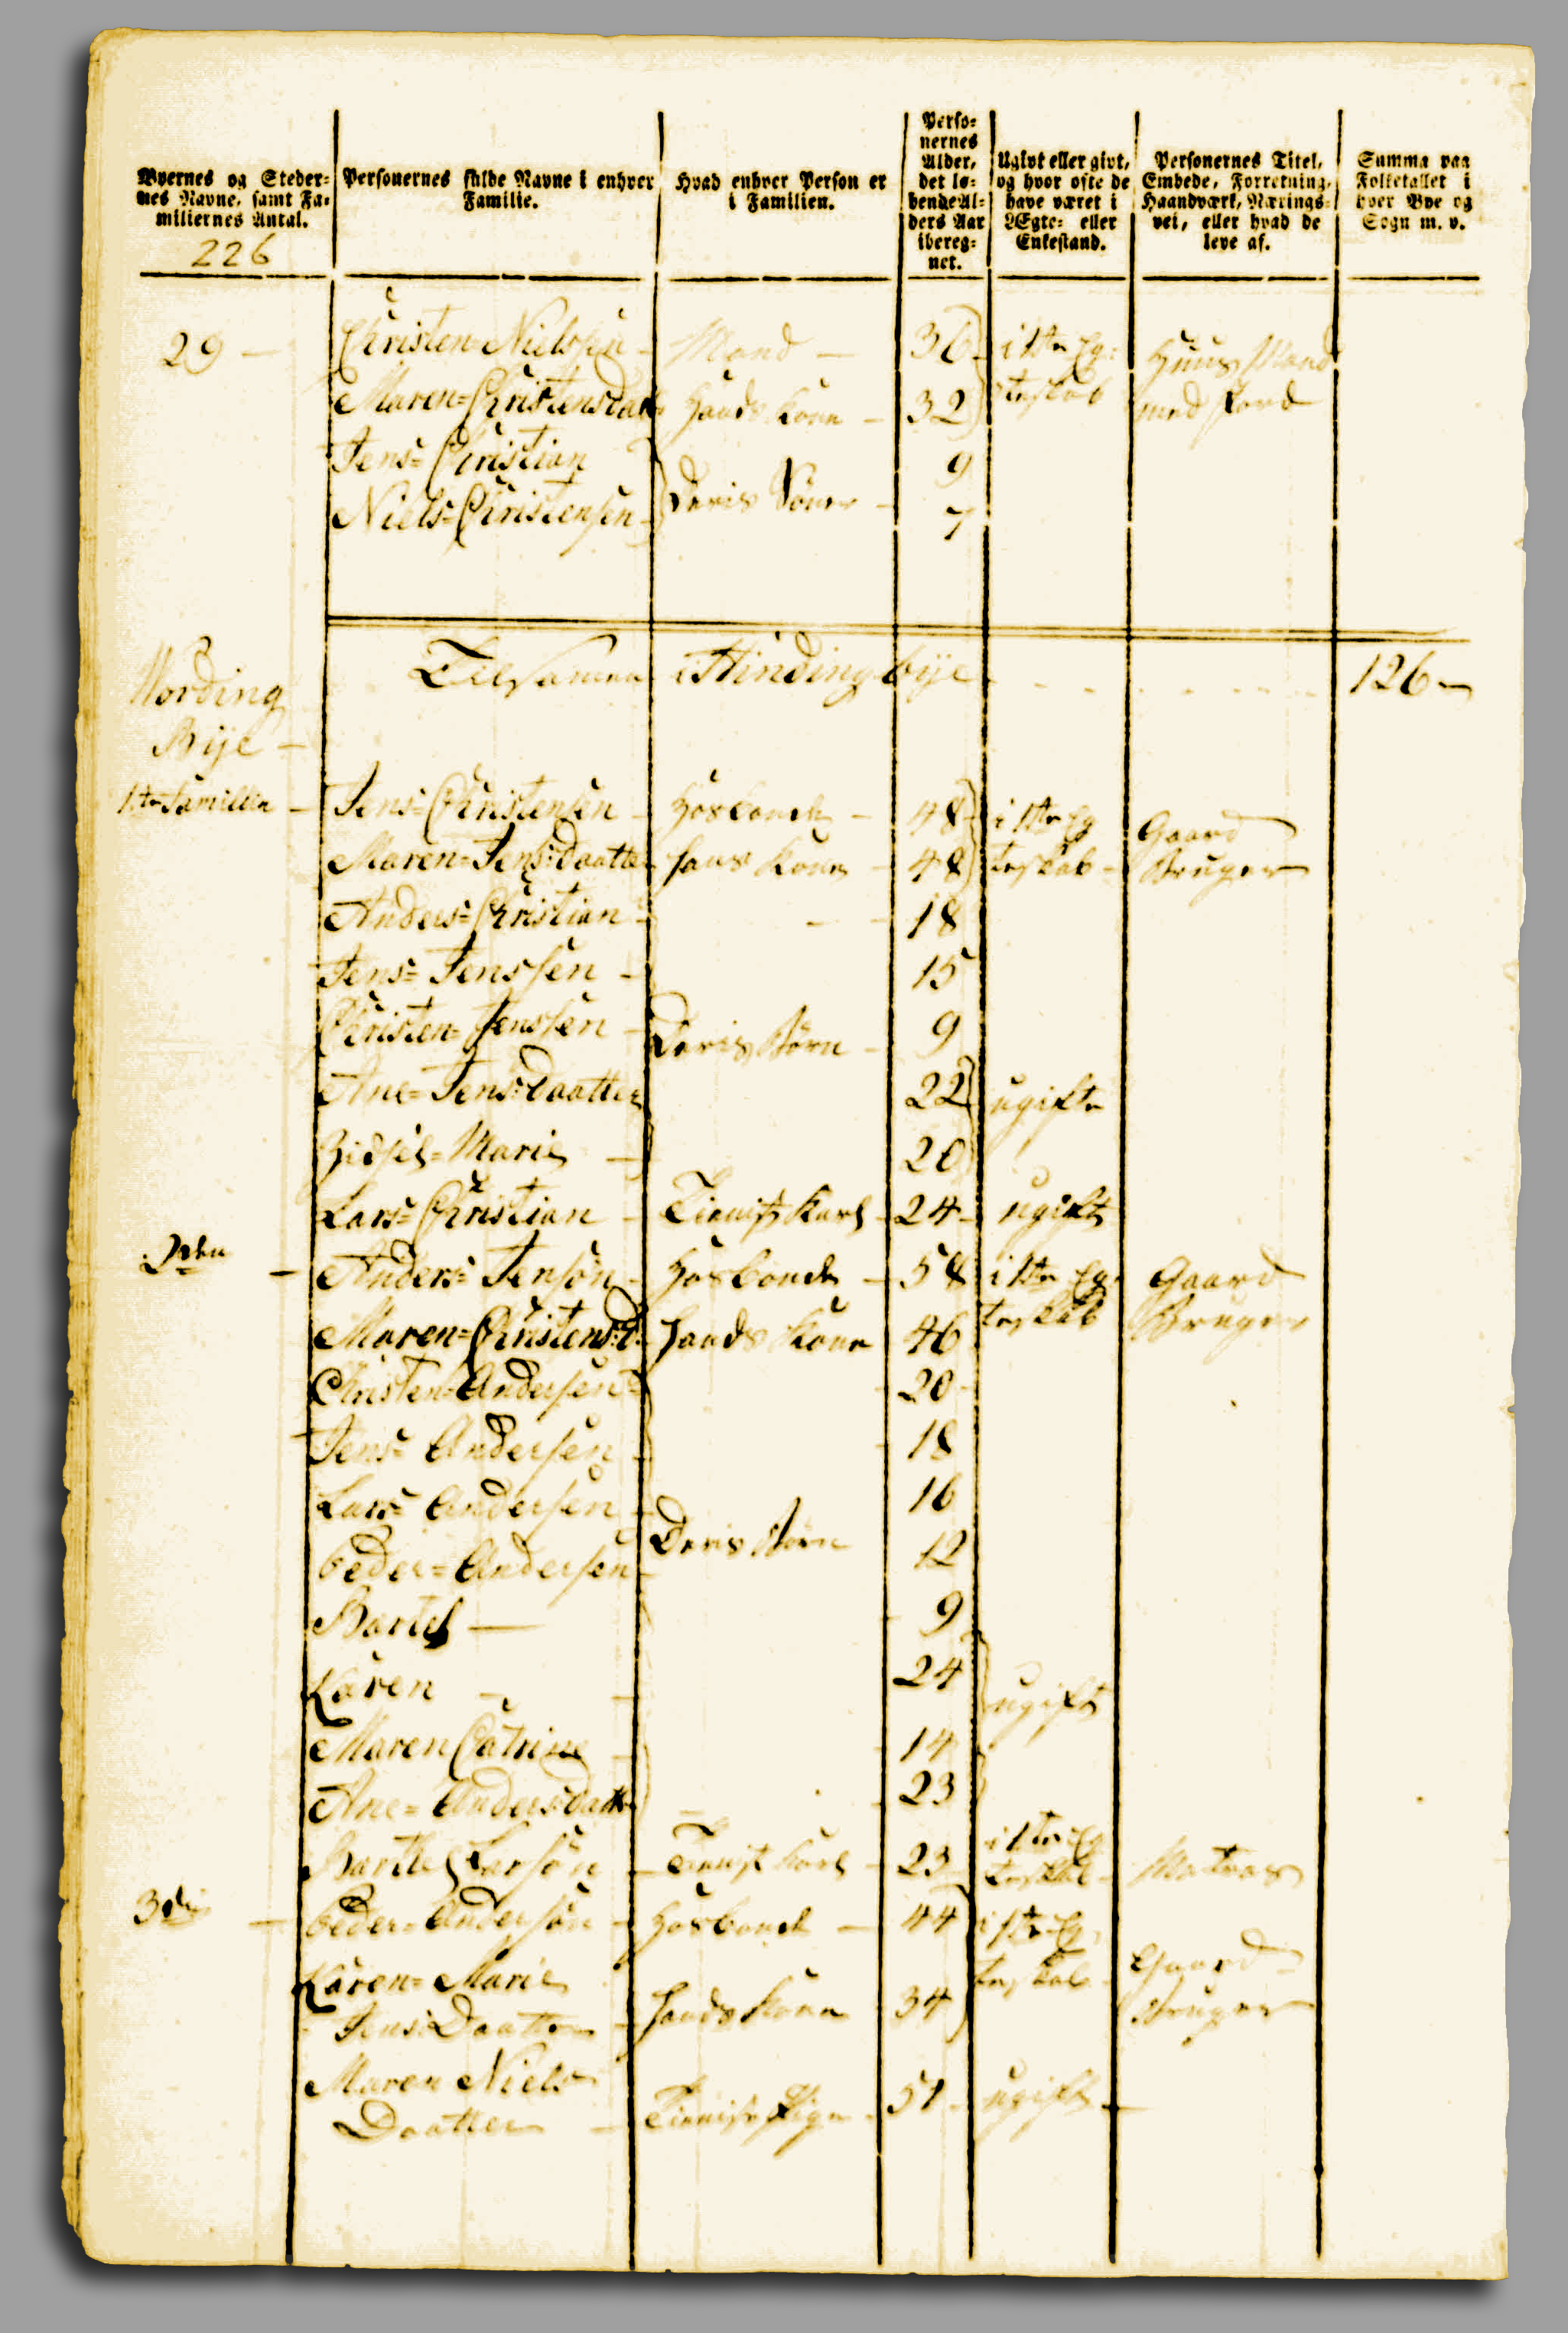 Byernes og Steder=
nes Navne, samt Fa=
miliernes Antal.
226
Personernes fulde Navne i enhver
Familie.
Hvad enhver Person er
i Familien.
Perso=
nernes
Alder,
det lø=
bende Al=
ders Aar
ibereg=
net.
Ugivt eller givt,
og hvor ofte de
have været i
Ægte= eller
Enkestand.
Personernes Titel,
Embede, Forretning,
Haandværk, Nærings=
vei, eller hvad de
leve af.
Summa paa
Folketallet i
hver Bye og
Sogn m. v.
29 — Christen=Nielssen — Mand — 36 i 1te Eg= Huus Mand
Maren=Christensdatt Hands Kone — 32 teskab med Jord
Jens=Christian 9
Niels=Christensen Deris Sönner — 7
Tilsamen i Hinding bÿe 126 —
Nording
Bÿe —
1te Familie — Jens=Christensen — Hosbonde — 48 i 1te Eg Gaard
Maren=Jens:Daatter hans Kone — 48 teskab — Bruger
Anders=Christian — 18
Jens=Jenssen — 15
Christen=Jenssen — Deris Börn — 9
Ane=Jens:Daatter 22 ugifte
Zidsel=Marie — 20
Lars=Christian — Tienist Karl — 24 — ugift
2den — Anders=Jensön — Hosbonde — 58 i 1te Eg= Gaard
Maren=Christens:d. hands Kone 46 teskab Bruger
Christen=Andersen 20
Jens=Andersen 18
Lars=Andersen — 16
Peder=Andersen — Deris Börn 12
Bartel — 9
Karen — 24 ugift
Maren Catrine — 14
Ane=Andersdatter 23
Bartel Larsön — Tienist Karl — 23 i 1te Eg
teskab — Matros
3die — Peder=Andersön — Hosbonde — 44 i 1te Eg=
Karen=Marie teskab Gaard=
Jens:Daatter — hands Kone 34 Bruger
Maren Niels
Daatter — Tieniste Pige — 51 — ugift —